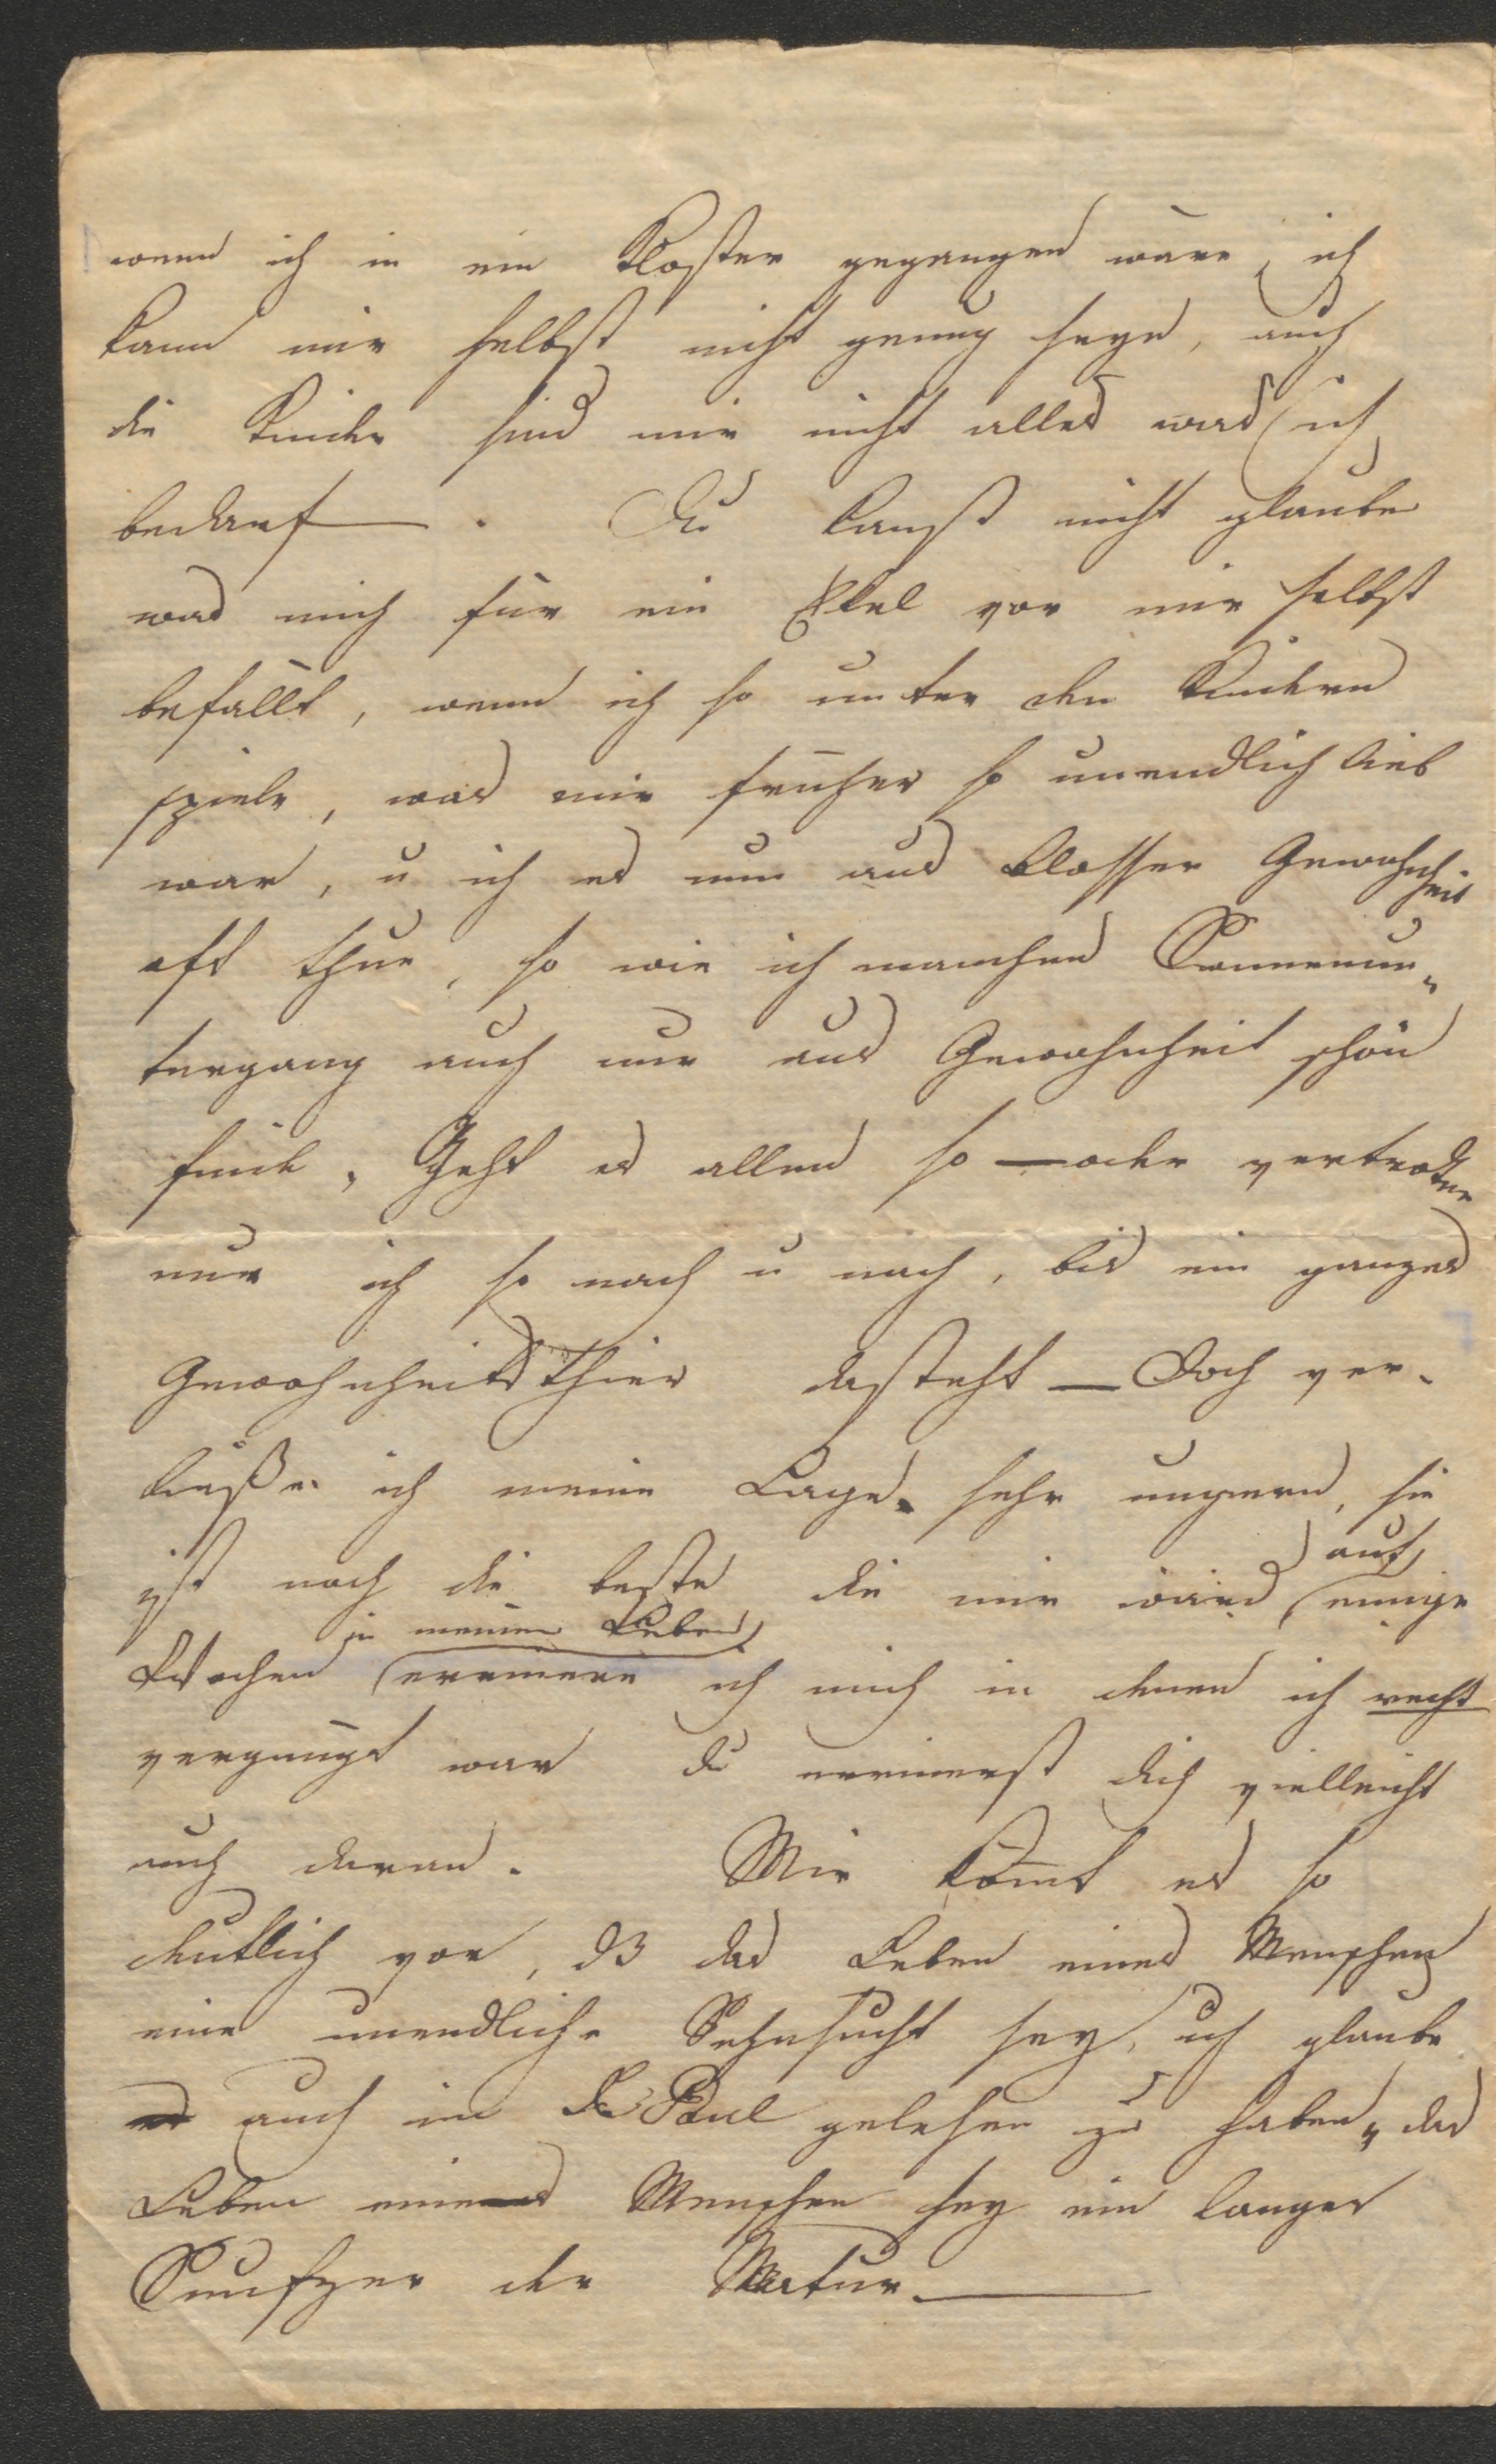 wenn ich in ein Kloster gegangen wäre, ich
kann mir selbst nicht genug seyn, auch
die Kinder sind mir nicht alles was ich
bedarf. Du kanst nicht glauben
was mich für ein Ekel vor mir selbst
befällt, wenn ich so unter den Kindern
spiele, was mir früher so unendlich lieb
war, u ich es nun aus blosser Gewohnheit
oft thue, so wie ich manchen Sonnenun-
tergang auch nur aus Gewohnheit schön
finde, Geht es allen so — oder vertrockne
nur ich so nach u nach, bis ein ganzes
Gewohnheitsthier dasteht — Doch ver-
ließe ich meine Lage sehr ungern, sie
ist noch die beste die mir ward, auf einige
Wochen in meinem Leben errinere ich mich in denen ich recht
vergnügt war du errinerst dich vielleicht
auch daran. Mir kömt es so
deutlich vor, dß das Leben eines Menschen
eine unendliche Sehnsucht sey, ich glaube
es auch im gelesen zu haben, das
Leben eines Menschen sey ein langer
Seufzer der Natur —